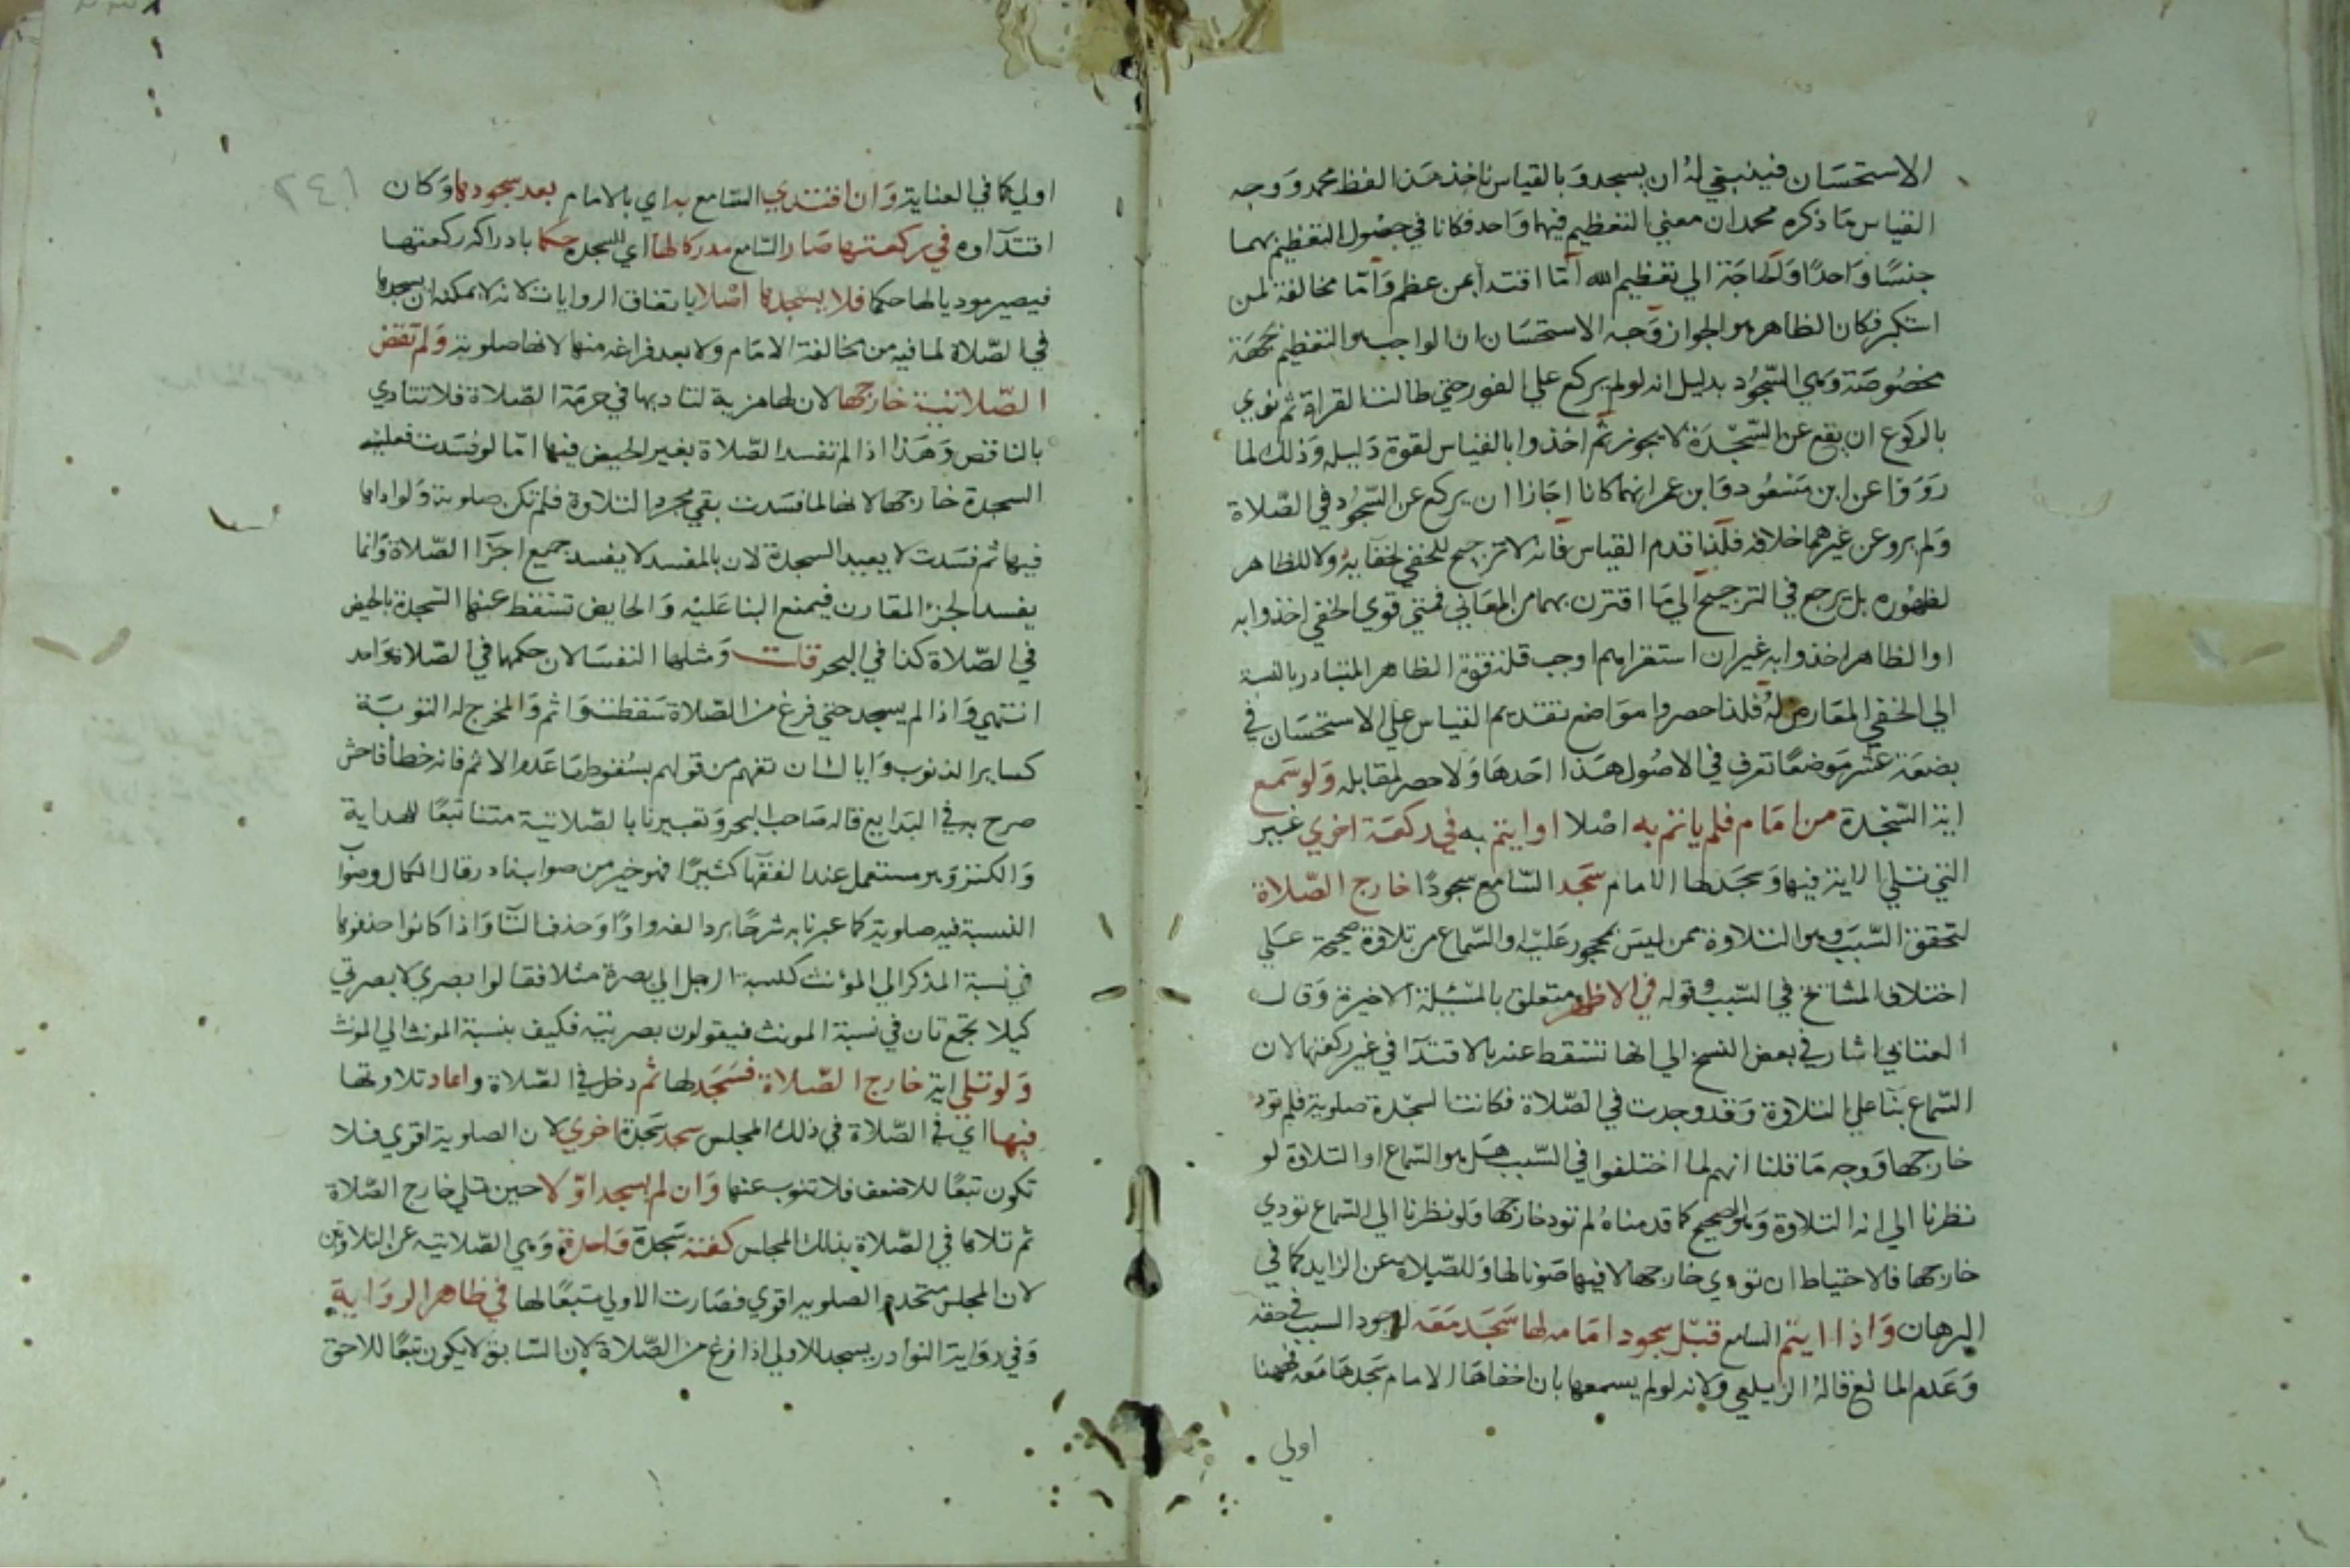 الاستحسان فينبغي له ان يسجد وبالقياس ناخذ هذا لفظ محمد ووجه
القياس ما ذكره محمد ان معني التعظيم فيهما واحد فكانا في حصول التعظيم بهما
جنسا واحدا والحاجة الي تعظيم الله اما اقتدا بمن عظم واما مخالفة لمن
استكبر فكان الظاهر هو الجواز وجه الاستحسان ان الواجب هو التعظيم بجهة
مخصوصة وهي السجود بدليل انه لو لم يركع علي الفور حتي طالت القراة ثم نوي
بالركوع ان يقع عن السجدة لا يجوز ثم اخذوا بالقياس لقوة دليله وذلك لما
روي عن ابن مسعود وابن عمر انهما كانا اجازا ان يركع عن السجود في الصلاة
ولم يرو عن غيرهما خلافه فلذا قدم القياس فانه لا ترجيح للخفي لخفايه ولا للظاهر
لظهوره بل يرجع في الترجيح الي ما اقترن بهما من المعاني فمتي قوي الخفي اخذوا به
او الظاهر اخذوا به غير ان استقراهم اوجب قلة قوة الظاهر المتبادر بالنسبة
الي الخفي المعارض له فلذا حصروا مواضع تقديم القياس علي الاستحسان في
بضعة عشر موضعا تعرف في الاصول هذا احدها ولا حصر لمقابله ولو سمع
اية السجدة من امام فلم ياتم به اصلا او ايتم به في ركعة اخري غير
التي تلي الاية فيها وسجد لها الامام سجد السامع سجودا خارج الصلاة
لتحقق السبب وهو التلاوة ممن ليس بمحجور عليه او السماع من تلاوة صحيحة علي
اختلاف المشايخ في السبب وقوله في الاظهر متعلق بالمسئلة الاخيرة وقال
العتابي اشار في بعض النسخ الي انها تسقط عنه بالاقتدا في غير ركعتها لان
السماع بنا علي التلاوة وقد وجدت في الصلاة فكانت السجدة صلوية فلم تود
خارجها ووجه ما قلنا انهم لما اختلفوا في السبب هل هو السماع او التلاوة لو
نظرنا الي انه التلاوة وهو الصحيح كما قدمناه لم تود خارجها ولو نظرنا الي السماع تودي
خارجها فالاحتياط ان تودي خارجها لا فيها صونا لها وللصلاة عن الزايد كما في
البرهان واذا ايتم السامع قبل سجود امامه لها سجد معه لوجود السبب في حقه
وعدم المانع قاله الزيلعي ولانه لو لم يسمعها بان اخفاها الامام سجدها معه فههنا
اولي
اولي كما في العناية وان اقتدي السامع به اي بالامام بعد سجودها وكان
اقتداوه في ركعتها صار السامع مدركا لها اي للسجدة حكما بادراكه ركعتها
فيصير موديا لها حكما فلا يسجدها اصلا باتفاق الروايات لانه لا يمكنه ان يسجدها
في الصلاة لما فيه من مخالفة الامام ولا بعد فراغه منها لانها صلوية ولم تقض
الصلاتية خارجها لان لها مزية لتاديها في حرمة الصلاة فلا تتادي
بالناقص وهذا اذا لم تفسد الصلاة بغير الحيض فيها اما لو فسدت فعليه
السجدة خارجها لانها لما فسدت بقي مجرد التلاوة فلم تكن صلوية ولو اداها
فيها ثم فسدت لا يعيد السجدة لان بالمفسد لا يفسد جميع اجزا الصلاة وانما
يفسد الجزء المقارن فيمنع البنا عليه والحايض تسقط عنها السجدة بالحيض
في الصلاة كذا في البحر قلت ومثلها النفسا لان حكمها في الصلاة واحد
انتهي واذا لم يسجد حتي فرغ من الصلاة سقطت واثم والمخرج له التوبة
كساير الذنوب واياك ان تفهم من قولهم بسقوطها عدم الاثم فانه خطا فاحش
صرح به في البدايع قاله صاحب البحر وتعبيرنا بالصلاتية متنا تبعا للهداية
والكنز وهو مستعمل عند الفقها كثيرا فهو خير من صواب نادر قال الكمال وصوابه
النسبة فيه صلوية كما عبرنا به شرحا برد الفه واوا وحذف التا واذا كانوا حذفوها
في نسبة المذكر الي المؤنث كنسبة الرجل الي بصرة مثلا فقالوا بصري لا بصرتي
كيلا يجتمع تان في نسبة المونث فيقولون بصرتية فكيف بنسبة المونث الي المونث
ولو تلي اية خارج الصلاة فسجد لها ثم دخل في الصلاة واعاد تلاوتها
فيها اي في الصلاة في ذلك المجلس سجد سجدة اخري لان الصلوية اقوي فلا
تكون تبعا للاضعف فلا تنوب عنها وان لم يسجد اولا حين تلي خارج الصلاة
ثم تلاها في الصلاة بذلك المجلس كفته سجدة واحدة وهي الصلاتية عن التلاوتين
لان المجلس متحد والصلوية اقوي فصارت الاولي تبعا لها في ظاهر الرواية
وفي رواية النوادر يسجد للاولي اذا فرغ من الصلاة لان السابق لا يكون تبعا للاحق